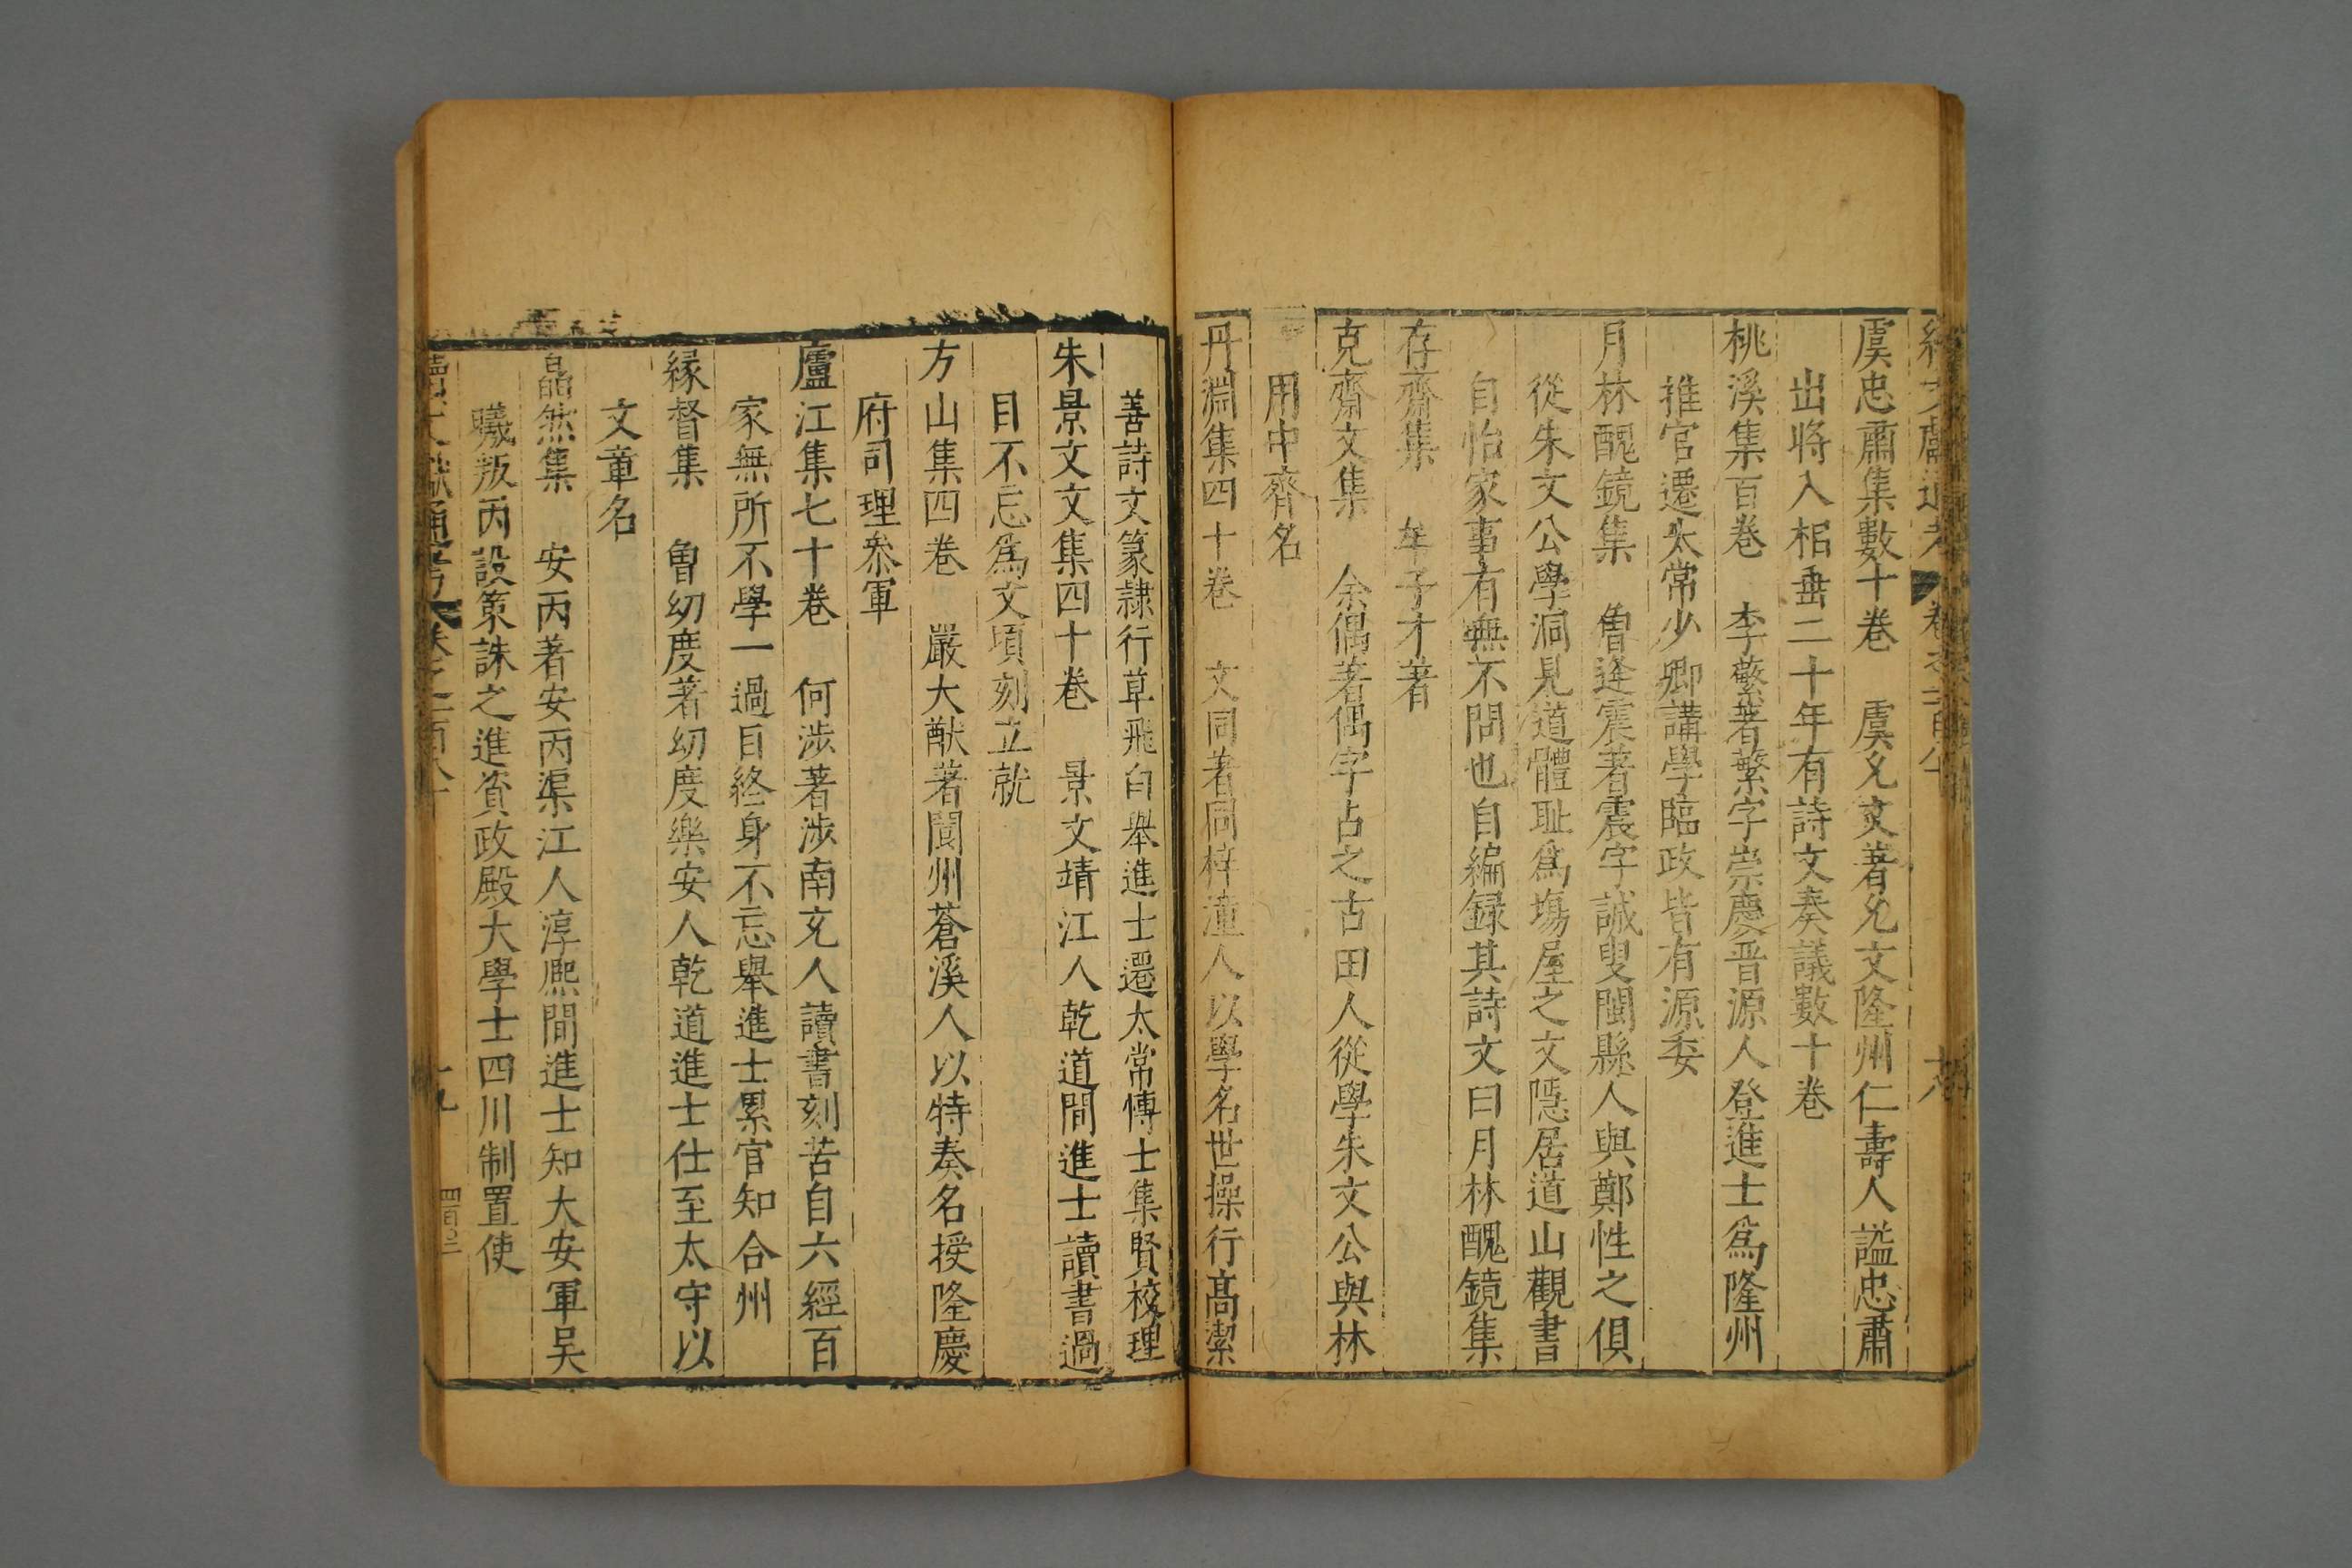 虞忠肅集數十卷 虞允文著允文隆州仁壽人謚忠肅
出將入相垂二十年有詩文奏議數十卷
桃溪集百卷 李蘩著蘩字崇慶晋源人登進士爲隆州
推官遷太常少卿講學臨政皆有源委
月林醜鏡集 魯逢震著震字誠叟閩縣人與鄭性之俱
從朱文公學洞見道體耻爲塲屋之文隱居道山觀書
自怡家事有無不問也自編録其詩文曰月林醜鏡集
存齋集 年子才著
克齋文集 余偶著偶字占之古田人從學朱文公與林
用中齊名
丹淵集四十卷 文同著同梓潼人以學名世操行髙潔
善詩文篆隷行草飛白舉進士遷太常愽士集賢校理
朱景文文集四十卷 景文靖江人乾道間進士讀書過
目不忘爲文頃刻立就
方山集四卷 嚴大猷著閬州蒼溪人以特奏名授隆慶
府司理叅軍
廬江集七十卷 何涉著涉南充人讀書刻苦自六經百
家無所不學一過目終身不忘舉進士累官知合州
緣督集 曾㓜度著㓜度樂安人乾道進士仕至太守以
文章名
皛然集 安丙著安丙渠江人淳熈間進士知大安軍吴
曦叛丙設策誅之進資政殿大學士四川制置使
續文獻通考 卷之一百八十
十九